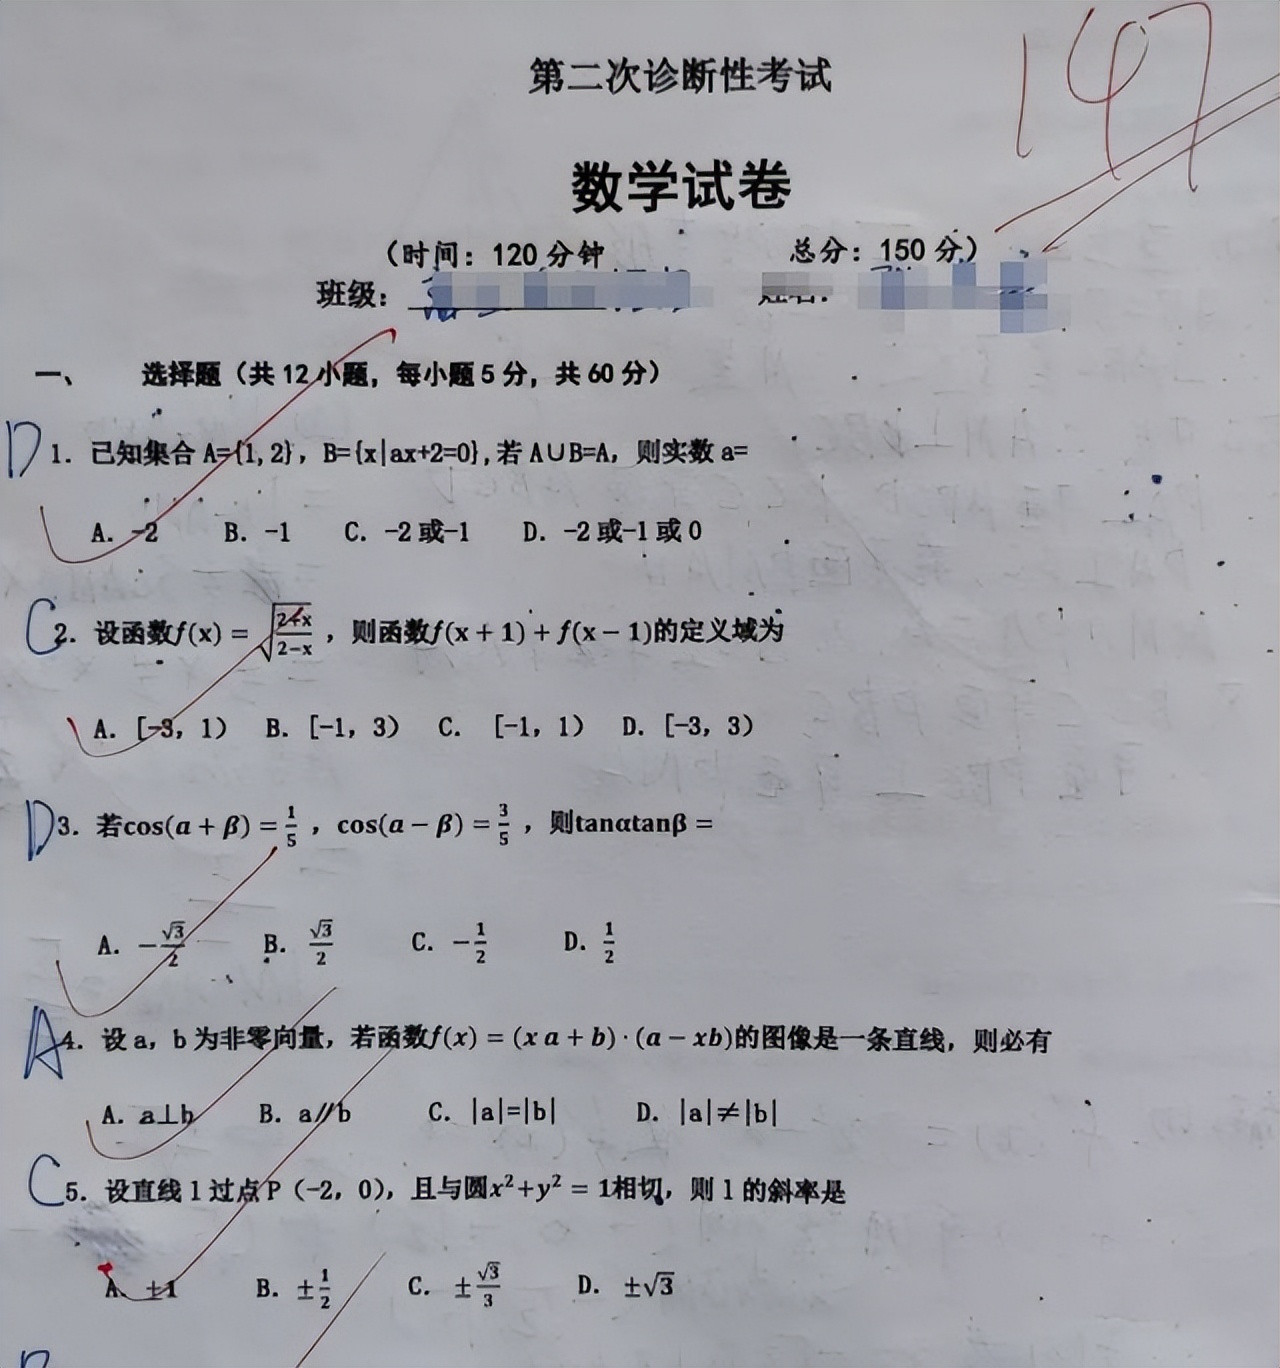 147
第二次诊断性考试
数学试卷
（时间：120 分钟 总分：150 分）
班级： 姓名：
一、 选择题（共 12 小题，每小题 5 分，共 60 分）
D 1. 已知集合 A={1,2}，B={x|ax+2=0},若 A∪B=A，则实数 a=
A. -2 B. -1 C. -2 或-1 D. -2 或-1 或 0
C 2. 设函数f(x) = √((2+x)/(2-x))，则函数f(x + 1) + f(x − 1)的定义域为
A. [-3，1） B. [-1，3） C. [-1，1） D. [-3，3）
D 3. 若cos(α + β) = 1/5，cos(α − β) = 3/5，则tanαtanβ =
A. −√3/2 B. √3/2 C. −1/2 D. 1/2
A 4. 设 a，b 为非零向量，若函数f(x) = (x a + b) · (a − xb)的图像是一条直线，则必有
A. a⊥b B. a∥b C. |a|=|b| D. |a|≠|b|
C 5. 设直线 l 过点 P（-2，0），且与圆x²+y² = 1相切，则 l 的斜率是
A. ±1 B. ±1/2 C. ±√3/3 D. ±√3